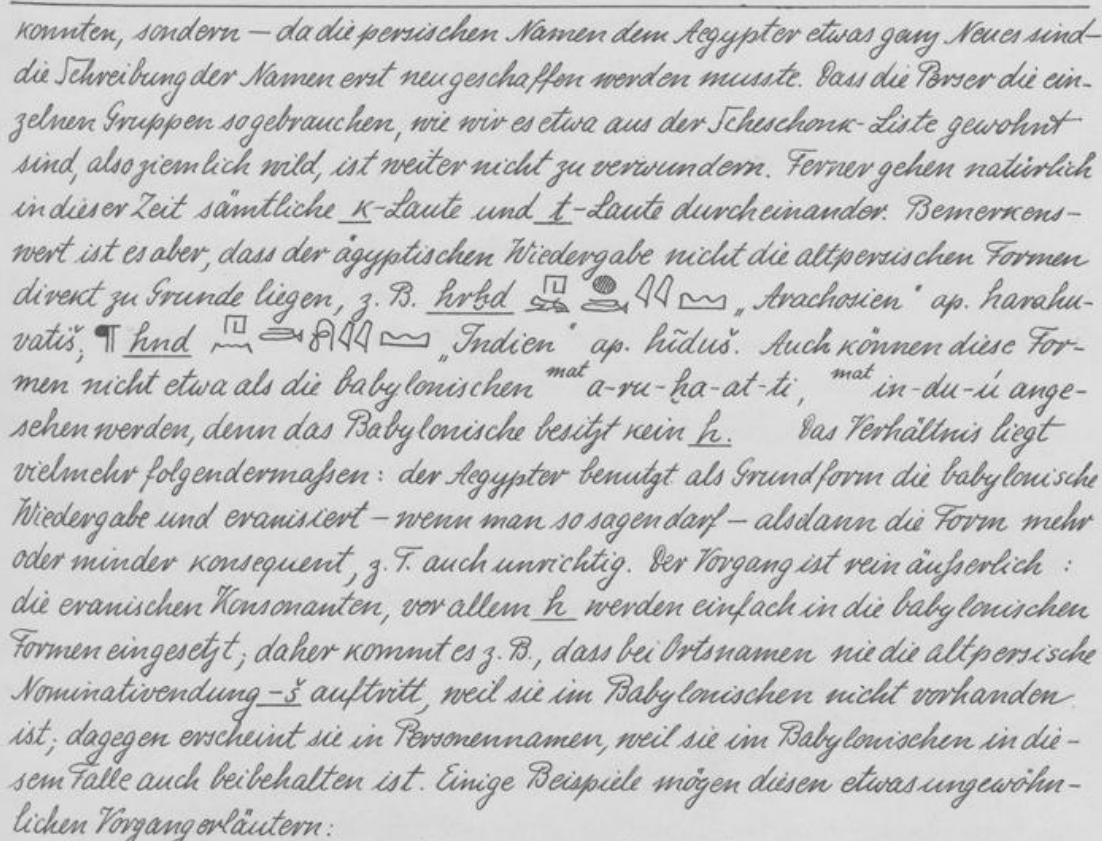 konnten, sondern — da die persischen Namen dem Aegypter etwas ganz Neues sind —
die Schreibung der Namen erst neu geschaffen werden musste. Dass die Perser die ein-
zelnen Gruppen so gebrauchen, wie wir es etwa aus der Scheschonk-Liste gewohnt
sind, also ziemlich wild, ist weiter nicht zu verwundern. Ferner gehen natürlich
in dieser Zeit sämtliche k-Laute und t-Laute durcheinander. Bemerkens-
wert ist es aber, dass der ägyptischen Wiedergabe nicht die altpersischen Formen
direkt zu Grunde liegen, z. B. hrbd „Arachosien" ap. harahu-
vatiš, ¶ hnd „Indien" ap. hīduš. Auch können diese For-
men nicht etwa als die babylonischen mat a-ru-ḫa-at-ti, mat in-du-ú ange-
sehen werden, denn das Babylonische besitzt kein h. Das Verhältnis liegt
vielmehr folgendermaßen: der Aegypter benutzt als Grundform die babylonische
Wiedergabe und eranisiert — wenn man so sagen darf — alsdann die Form mehr
oder minder konsequent, z. T. auch unrichtig. Der Vorgang ist rein äußerlich:
die eranischen Konsonanten, vor allem h werden einfach in die babylonischen
Formen eingesetzt; daher kommt es z. B., dass bei Ortsnamen nie die altpersische
Nominativendung -š auftritt, weil sie im Babylonischen nicht vorhanden
ist; dagegen erscheint sie in Personennamen, weil sie im Babylonischen in die-
sem Falle auch beibehalten ist. Einige Beispiele mögen diesen etwas ungewöhn-
lichen Vorgang erläutern: